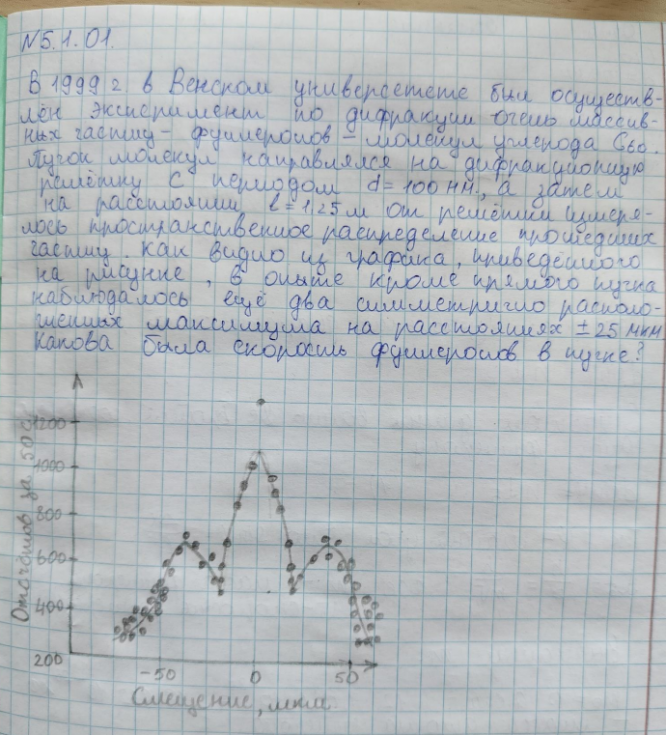 N5.1.01.
В 1999 г в Венском университете был осуществ-
лён эксперимент по дифракции очень массив-
ных частиц - фуллеренов - молекул углерода C60.
Пучок молекул направлялся на дифракционную
решётку с периодом d = 100 нм., а затем
на расстоянии l = 1,25 м от решётки измеря-
лось пространственное распределение прошедших
частиц. Как видно из графика, приведённого
на рисунке, в опыте кроме прямого пучка
наблюдалось ещё два симметрично располо-
женных максимума на расстояниях ± 25 мкм
Какова была скорость фуллеренов в пучке?
Отсчётов за 50 с
1200
1000
800
600
400
200
-50 0 50
Смещение, мкм